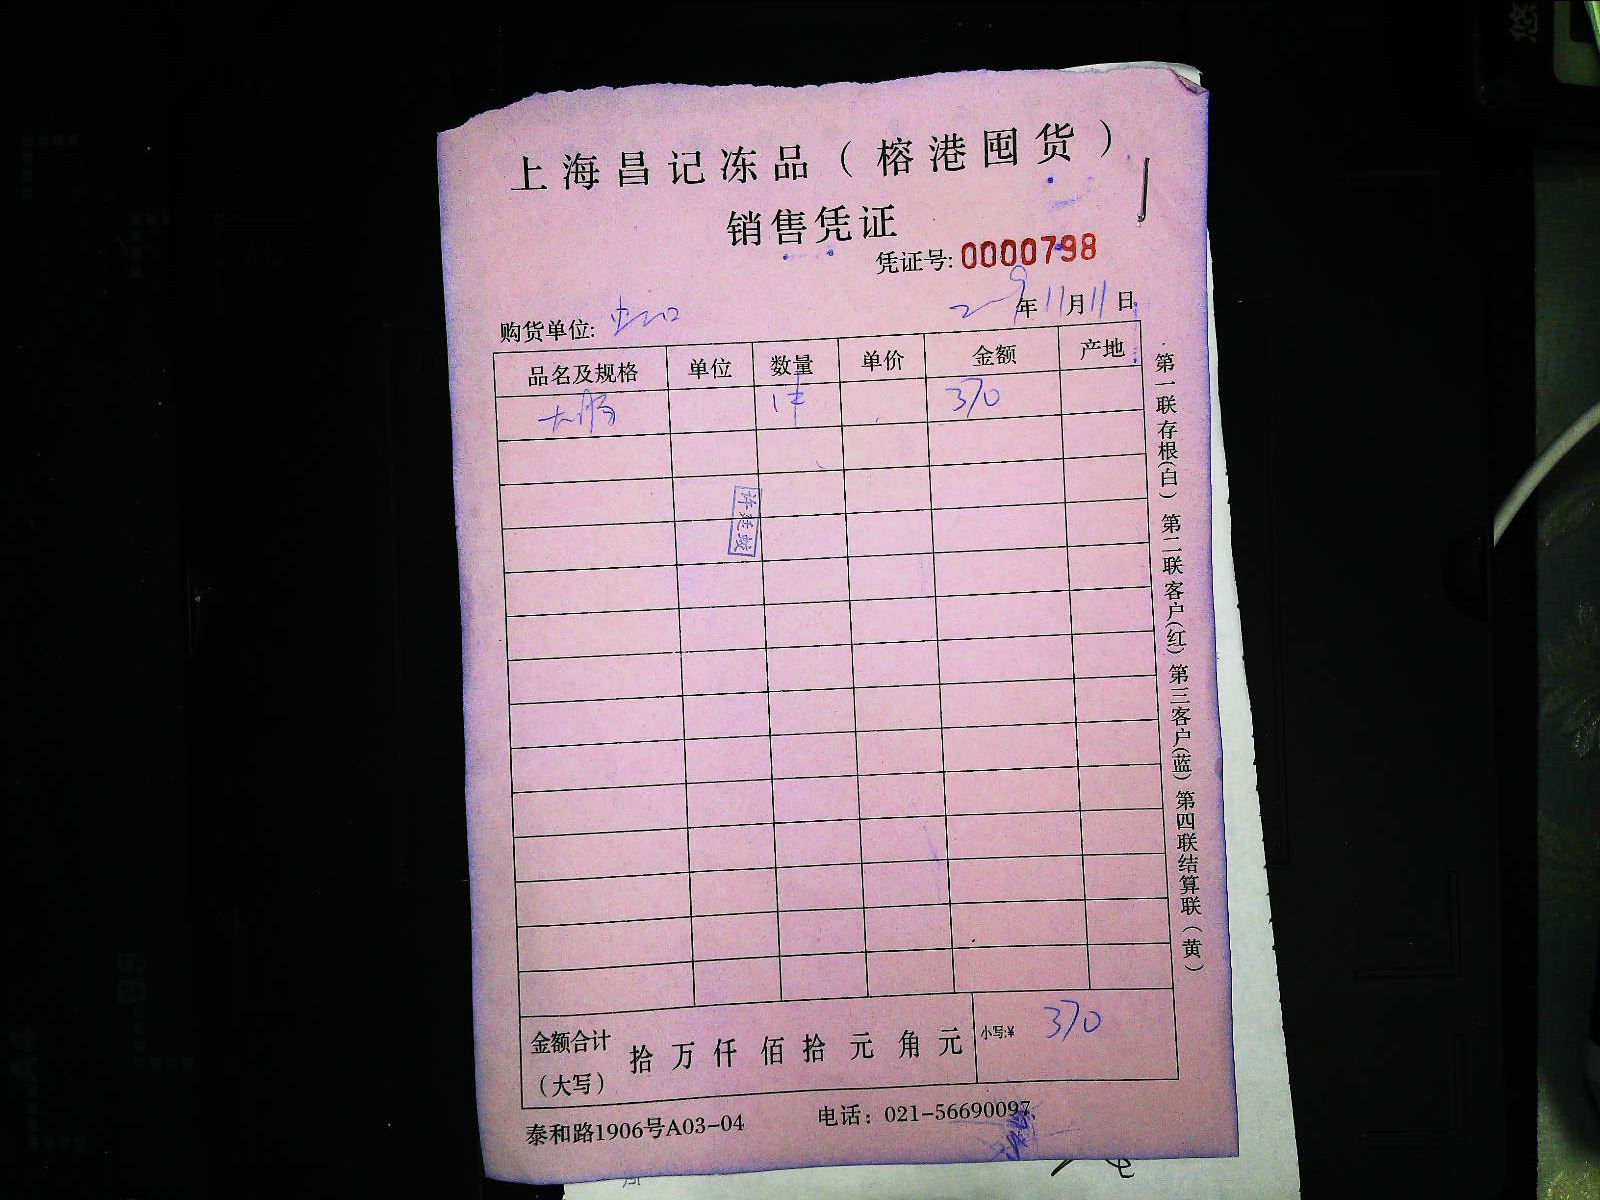 上海昌记冻品（榕港囤货）
销售凭证
凭证号: 0000798
年11月11日
购货单位: 虹口
品名及规格 单位 数量 单价 金额 产地
大肠 1件 370
金额合计（大写） 拾 万 仟 佰 拾 元 角 元 小写:¥ 370
泰和路1906号A03-04 电话：021-56690097
第一联存根(白) 第二联客户(红) 第三客户(蓝) 第四联结算联（黄）